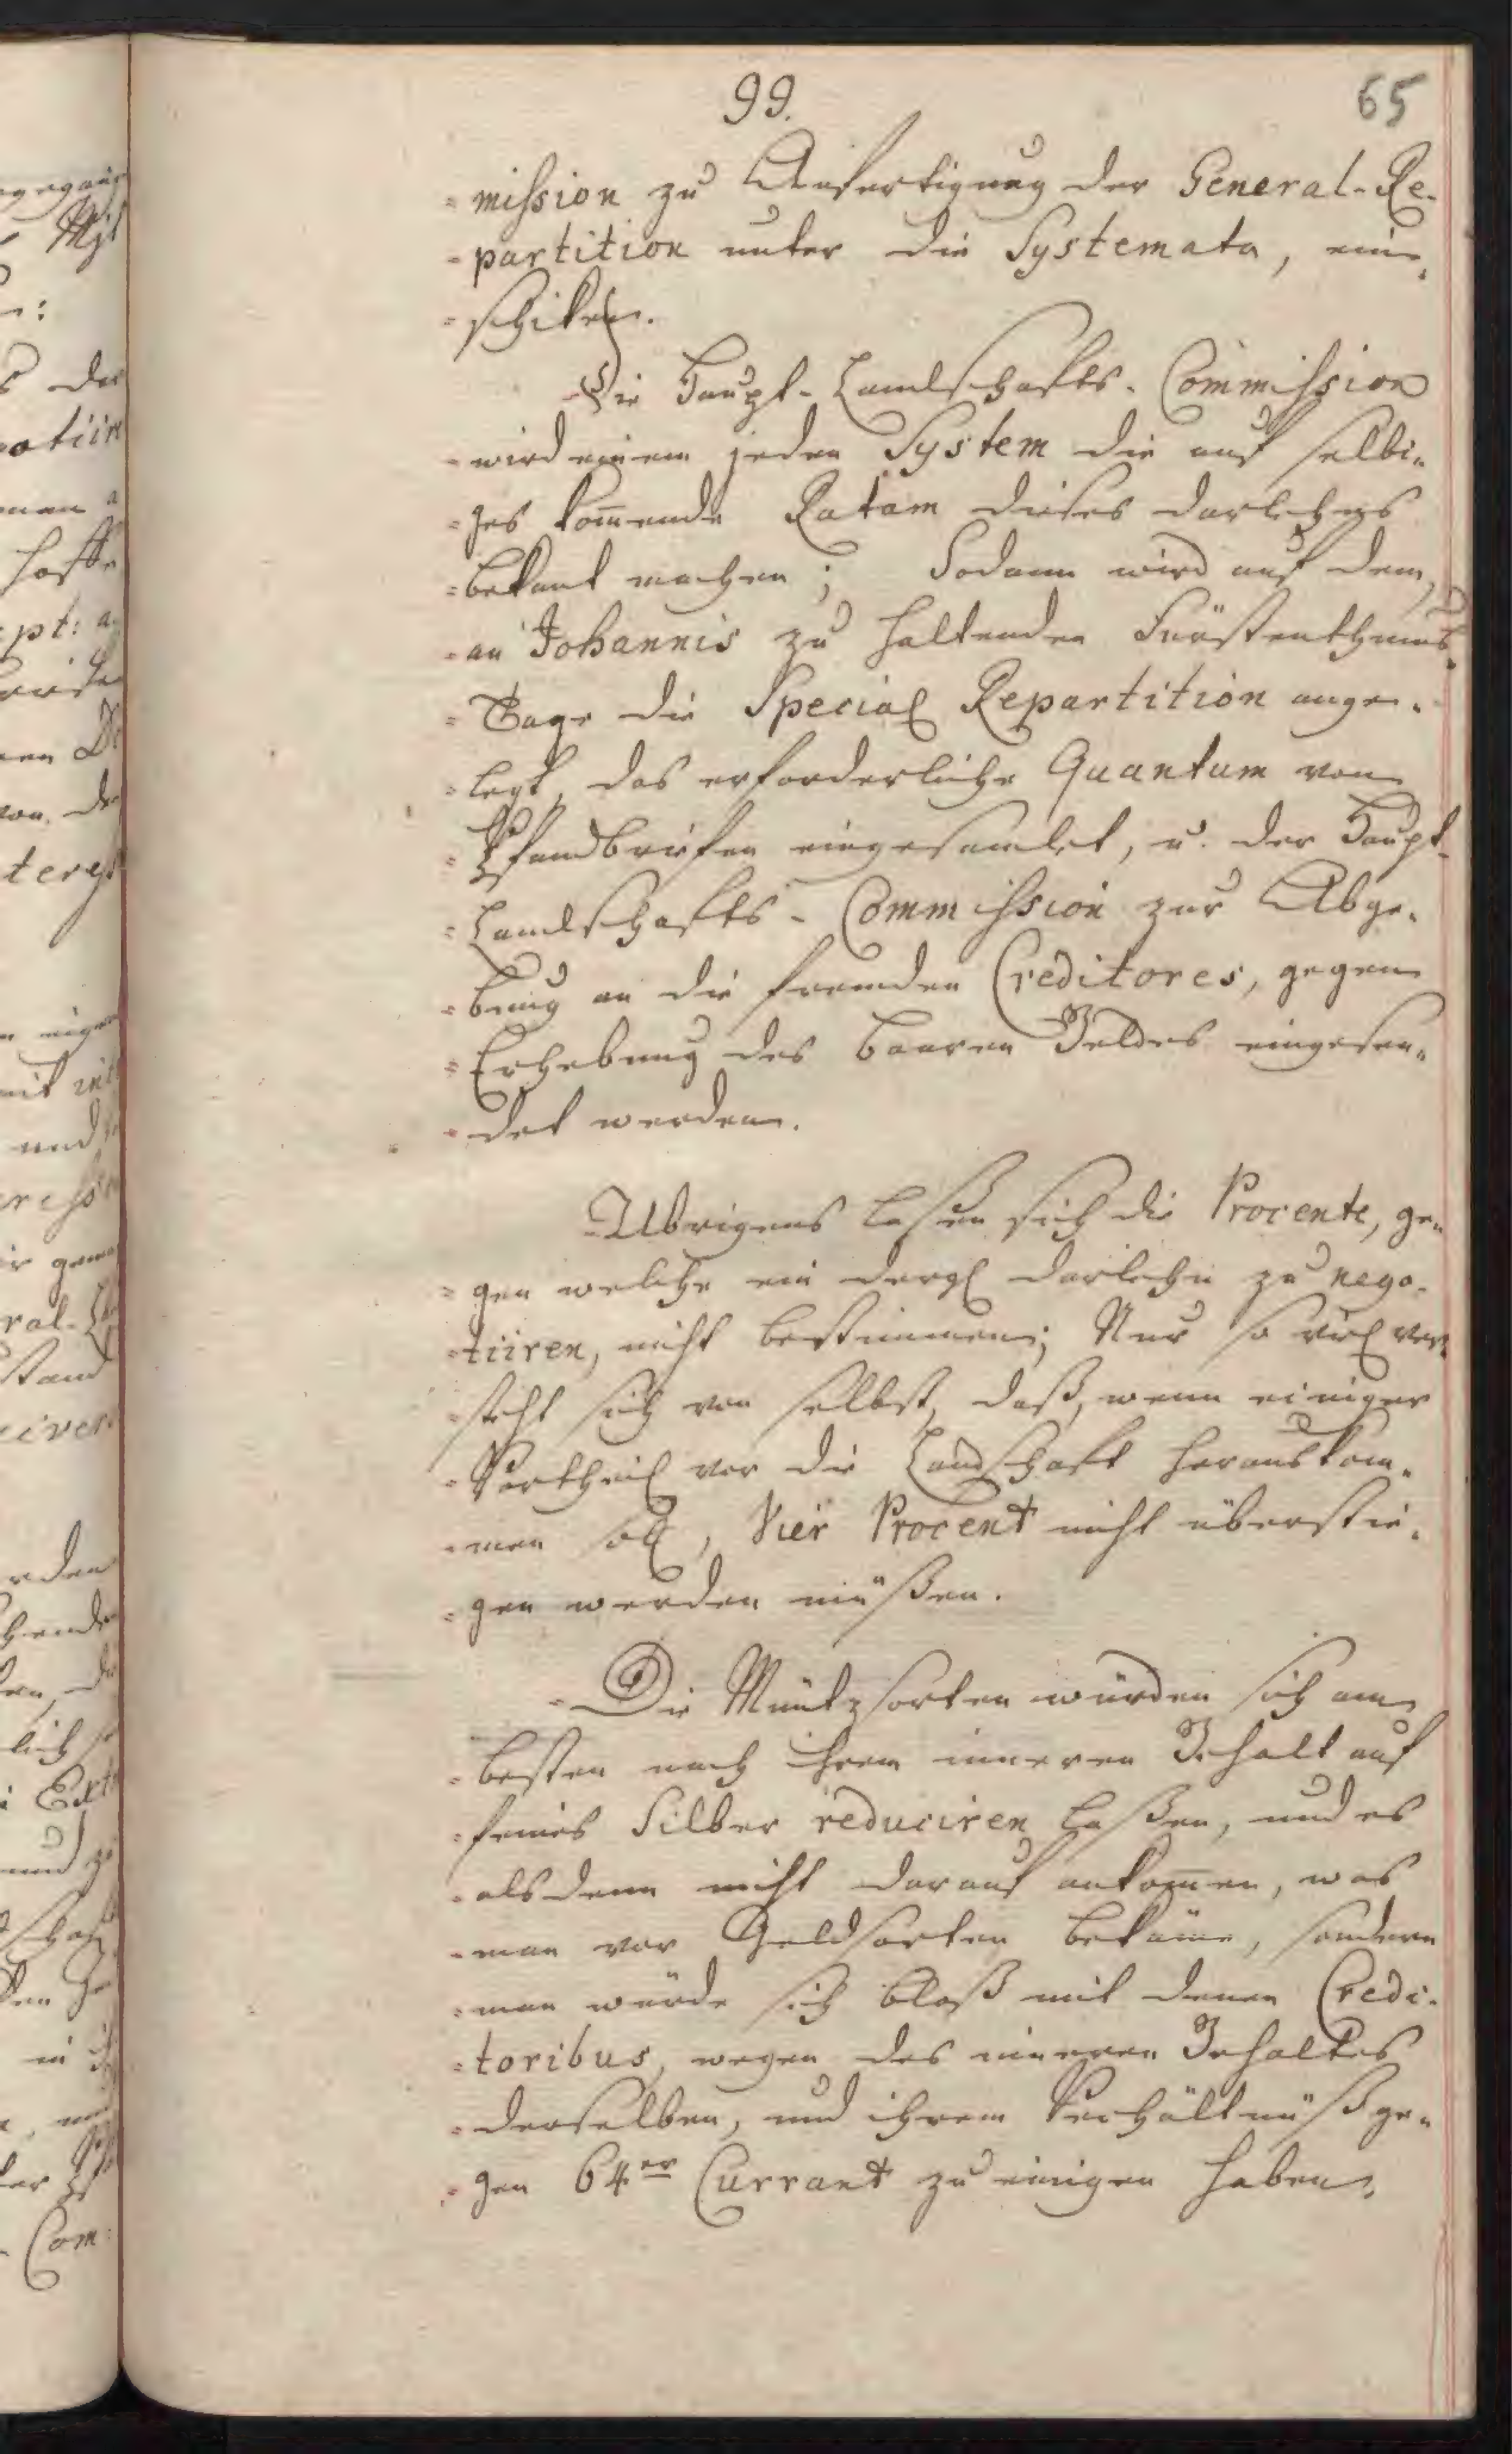 99.
65
mission zu Anfertigung der General-Re-
partition unter die Systemata, ein-
schiken.
Die Haupt-Landschafts-Commission
wird einem jeden System die auf selbi-
ges kom̄ende Ratam dieses darlehns
bekant machen; Sodann wird auf dem,
an Johannis zu haltenden Fürstenthums-
Tage die Special Repartition ange-
legt, das erforderliche Quantum von
Pfandbriefen eingesamlet, u. der Haupt-
Landschafts-Commission zur Abge-
bung an die fremden Creditores, gegen
Erhebung des baaren Geldes eingesen-
det werden.
Ubrigens laßen sich die Procente, ge-
gen welche ein dergl darlehn zu nego-
tiiren, nicht bestimmen; Nur so viel ver-
steht sich von selbst, daß, wenn einiger
Vortheil vor die Landschaft herauskom-
men soll, Vier Procent nicht überstie-
gen werden müßen.
Die Müntzsorten würden sich am
besten nach ihrem inneren Gehalt auf
feines Silber reduciren laßen, und es
alsdenn nicht darauf ankom̄en, was
man vor Geldsorten bekäme, sondern
man würde sich bloß mit denen Credi-
toribus, wegen des inneren Gehaltes
derselben, und ihrem Verhältnüß ge-
gen 64er Currant zu einigen haben.